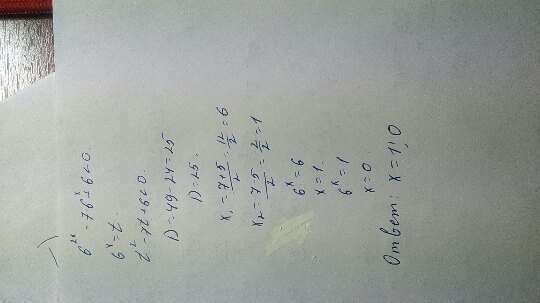 6^2x - 7·6^x + 6 < 0.
6^x = t.
t^2 - 7t + 6 < 0.
D = 49 - 24 = 25
D = 25.
x₁ = (7+5)/2 = 12/2 = 6
x₂ = (7-5)/2 = 2/2 = 1
6^x = 6
x = 1.
6^x = 1
x = 0.
Ответ: x = 1; 0